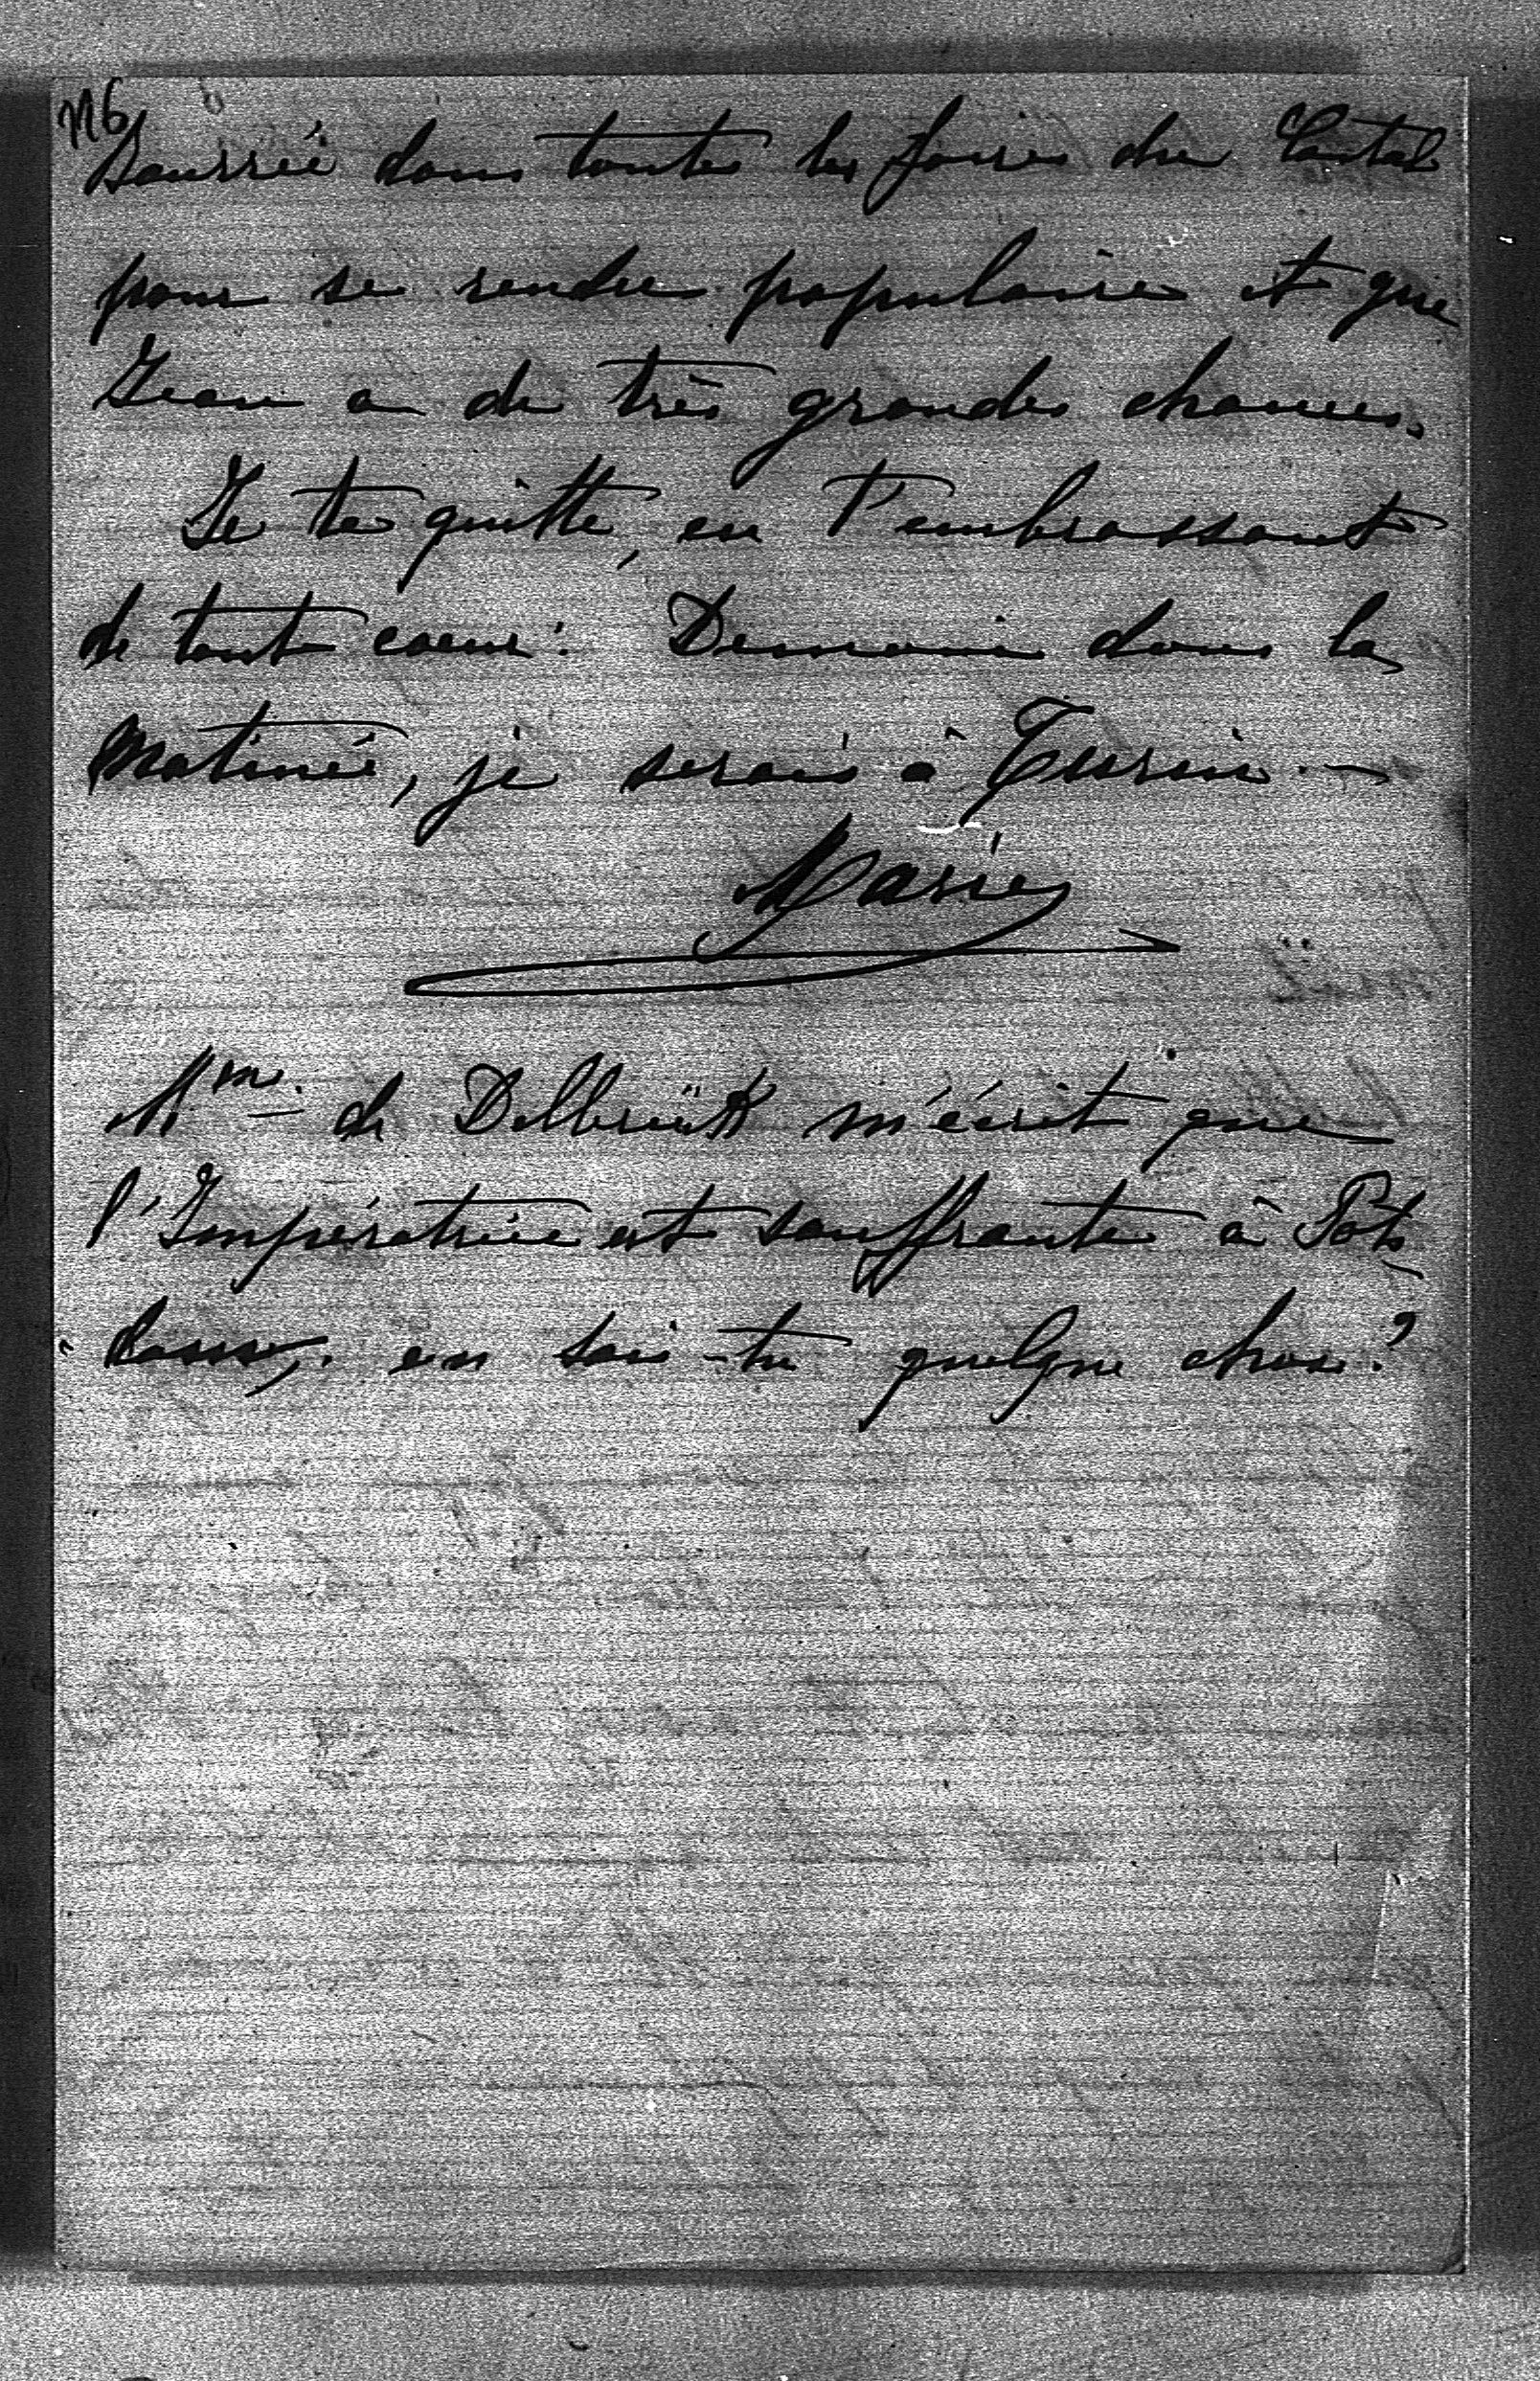 116
bourrée dans toutes les foires du Cantal
pour se rendre populaire et que
Jean a de très grandes chances.
Je te quitte, en t'embrassant
de tout coeur. Demain dans la
matinée, je serais à Turin. —
Marie
Mme de Delbrück m'écrit que
l'Impératrice est souffrante à Pots-
dam, en sais-tu quelque chose?